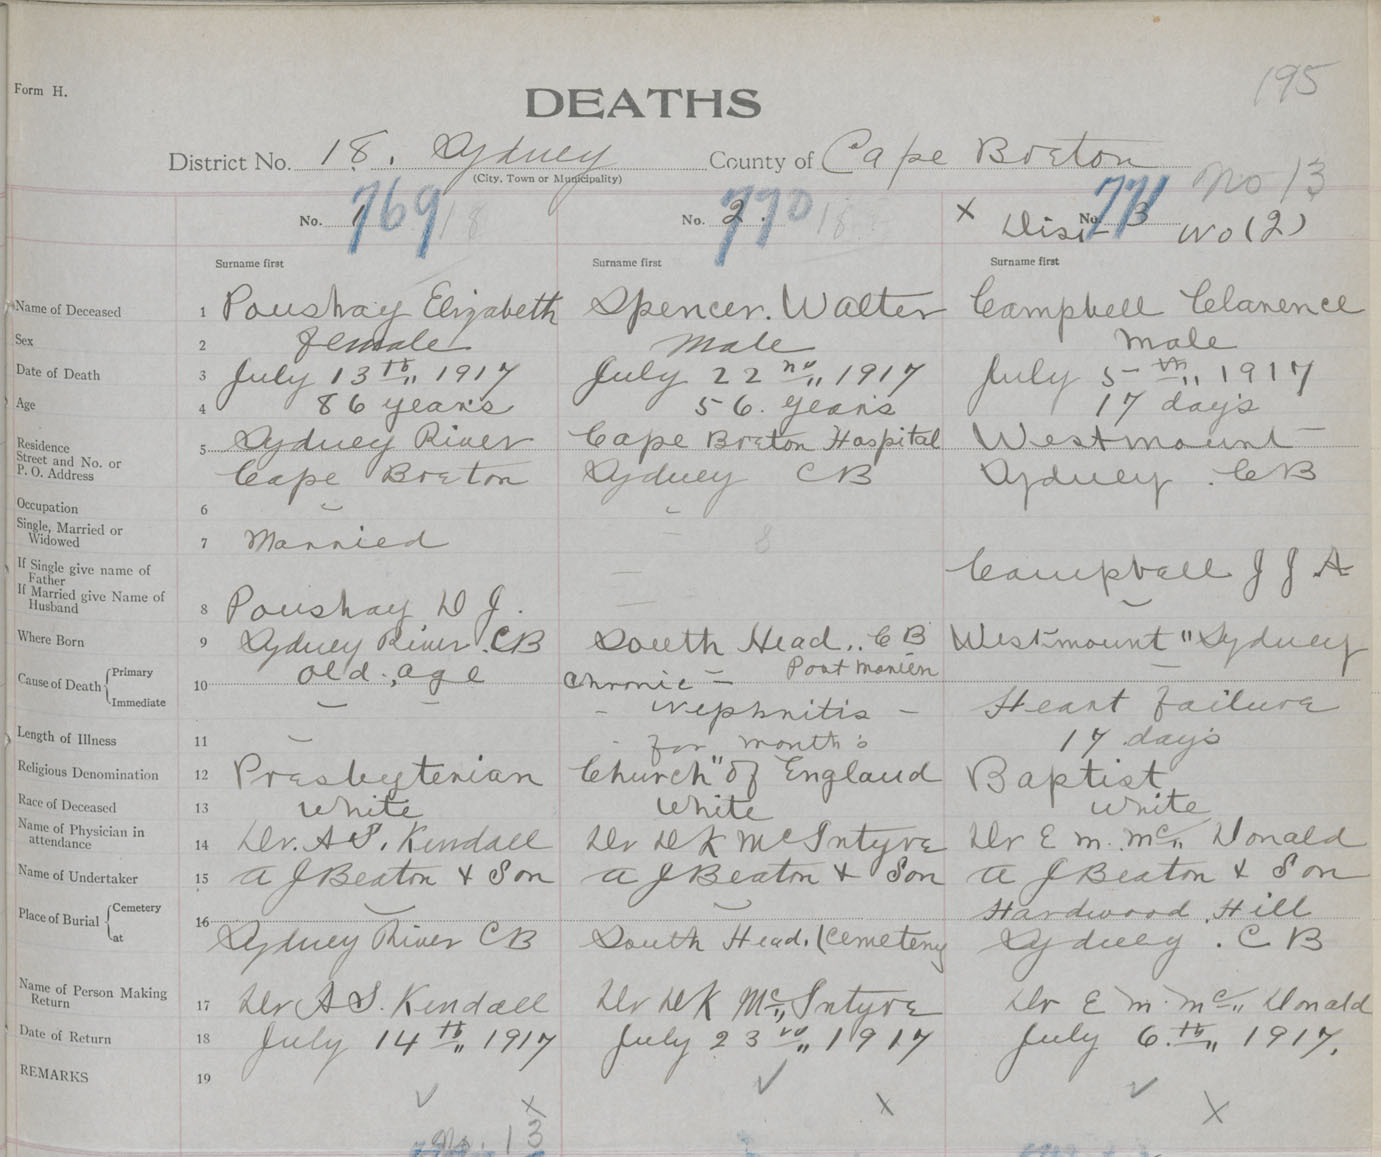 195
Form H.
DEATHS
District No. 18. Sydney County of Cape Breton
(City, Town or Municipality)
No 13
No. 1 769 18
No. 2. 770 18
x No. 3 771 Dist No (2)
Surname first Surname first Surname first
Name of Deceased 1 Poushay Elizabeth Spencer. Walter Campbell Clarence
Sex 2 female Male Male
Date of Death 3 July 13th 1917 July 22nd 1917 July 5th 1917
Age 4 86 years 56. years 17 days
Residence Street and No. or P. O. Address 5 Sydney River Cape Breton Hospital Westmount
Cape Breton Sydney CB Sydney . CB
Occupation 6 - -
Single, Married or Widowed 7 Married - 8
If Single give name of Father Campbell J J A
If Married give Name of Husband 8 Poushay D J.
Where Born 9 Sydney River. CB South Head.. CB Westmount " Sydney
Cause of Death { Primary 10 old age Chronic -
Immediate - - - Nephritis - Heart failure
Length of Illness 11 - for months 17 days
Religious Denomination 12 Presbyterian Church "of England Baptist
Race of Deceased 13 White White White
Name of Physician in attendance 14 Dr. A S. Kendall Dr D K McIntyre Dr E M. Mc Donald
Name of Undertaker 15 A J Beaton & Son A J Beaton & Son A J Beaton & Son
Place of Burial { Cemetery 16 Hardwood . Hill
at Sydney River CB South Head. (Cemetery Sydney . C B
Name of Person Making Return 17 Dr A S. Kendall Dr D K McIntyre Dr E M. Mc Donald
Date of Return 18 July 14th 1917 July 23rd 1917 July 6.th 1917.
REMARKS 19
x x x
13